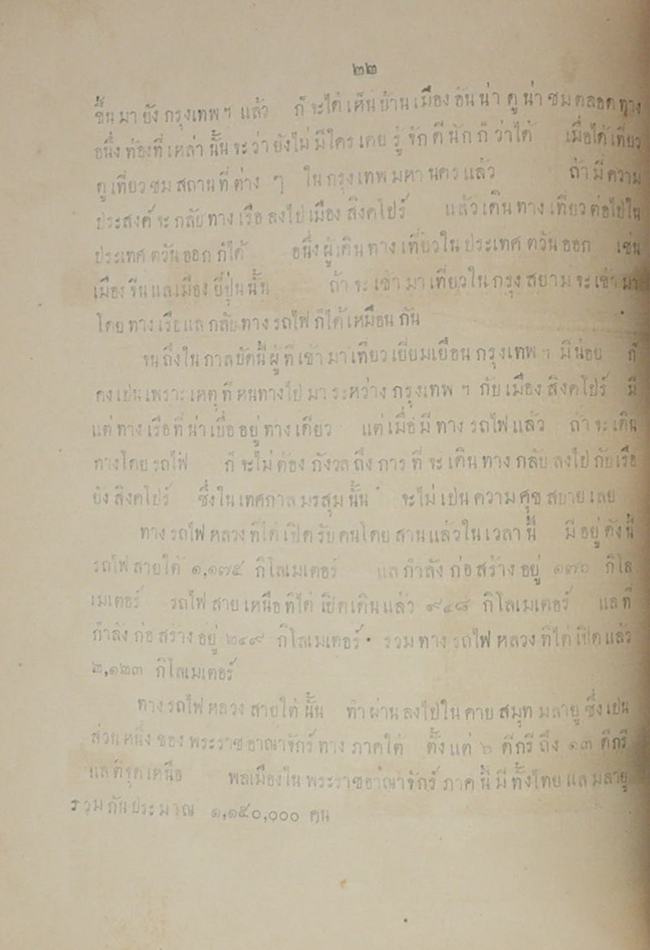 ๒๒
ขึ้นมายังกรุงเทพฯ แล้ว ก็จะได้เห็นบ้านเมืองอันน่าดูน่าชมตลอดทาง
อนึ่งท้องที่เหล่านั้นจะว่ายังไม่มีใครเคยรู้จักดีนักก็ว่าได้ เมื่อได้เที่ยว
ดูเที่ยวชมสถานที่ต่าง ๆ ในกรุงเทพมหานครแล้ว ถ้ามีความ
ประสงค์จะกลับทางเรือลงไปเมืองสิงคโปร์ แล้วเดินทางเที่ยวต่อไปใน
ประเทศตวันออกก็ได้ อนึ่งผู้เดินทางเที่ยวในประเทศตวันออก เช่น
เมืองจีนแลเมืองยี่ปุ่นนั้น ถ้าจะเข้ามาเที่ยวในกรุงสยามจะเข้ามา
โดยทางเรือแลกลับทางรถไฟก็ได้เหมือนกัน
จนถึงในกาลบัดนี้ผู้ที่เข้ามาเที่ยวเยี่ยมเยือนกรุงเทพฯ มีน้อย ก็
คงเปนเพราะเหตุที่หนทางไปมาระหว่างกรุงเทพฯ กับเมืองสิงคโปร์ มี
แต่ทางเรือที่น่าเบื่ออยู่ทางเดียว แต่เมื่อมีทางรถไฟแล้ว ถ้าจะเดิน
ทางโดยรถไฟ ก็จะไม่ต้องกังวลถึงการที่จะเดินทางกลับลงไปกับเรือ
ยังสิงคโปร์ ซึ่งในเทศกาลมรสุมนั้น จะไม่เปนความศุขสบายเลย
ทางรถไฟหลวงที่ได้เปิดรับคนโดยสานแล้วในเวลานี้ มีอยู่ดังนี้
รถไฟสายใต้ ๑,๑๗๕ กิโลเมเตอร์ แลกำลังก่อสร้างอยู่ ๑๗๖ กิโล
เมเตอร์ รถไฟสายเหนือที่ได้เปิดเดินแล้ว ๙๔๘ กิโลเมเตอร์ แลที่
กำลังก่อสร้างอยู่ ๒๔๙ กิโลเมเตอร์ รวมทางรถไฟหลวงที่ได้เปิดแล้ว
๒,๑๒๓ กิโลเมเตอร์
ทางรถไฟหลวงสายใต้นั้น ทำผ่านลงไปในคาบสมุทมลายูซึ่งเปน
ส่วนหนึ่งของพระราชอาณาจักร์ทางภาคใต้ ตั้งแต่ ๖ ดีกรีถึง ๑๓ ดีกรี
แลติจุดเหนือ พลเมืองในพระราชอาณาจักร์ภาคนี้มีทั้งไทยแลมลายู
รวมกันประมาณ ๑,๑๕๐,๐๐๐ คน